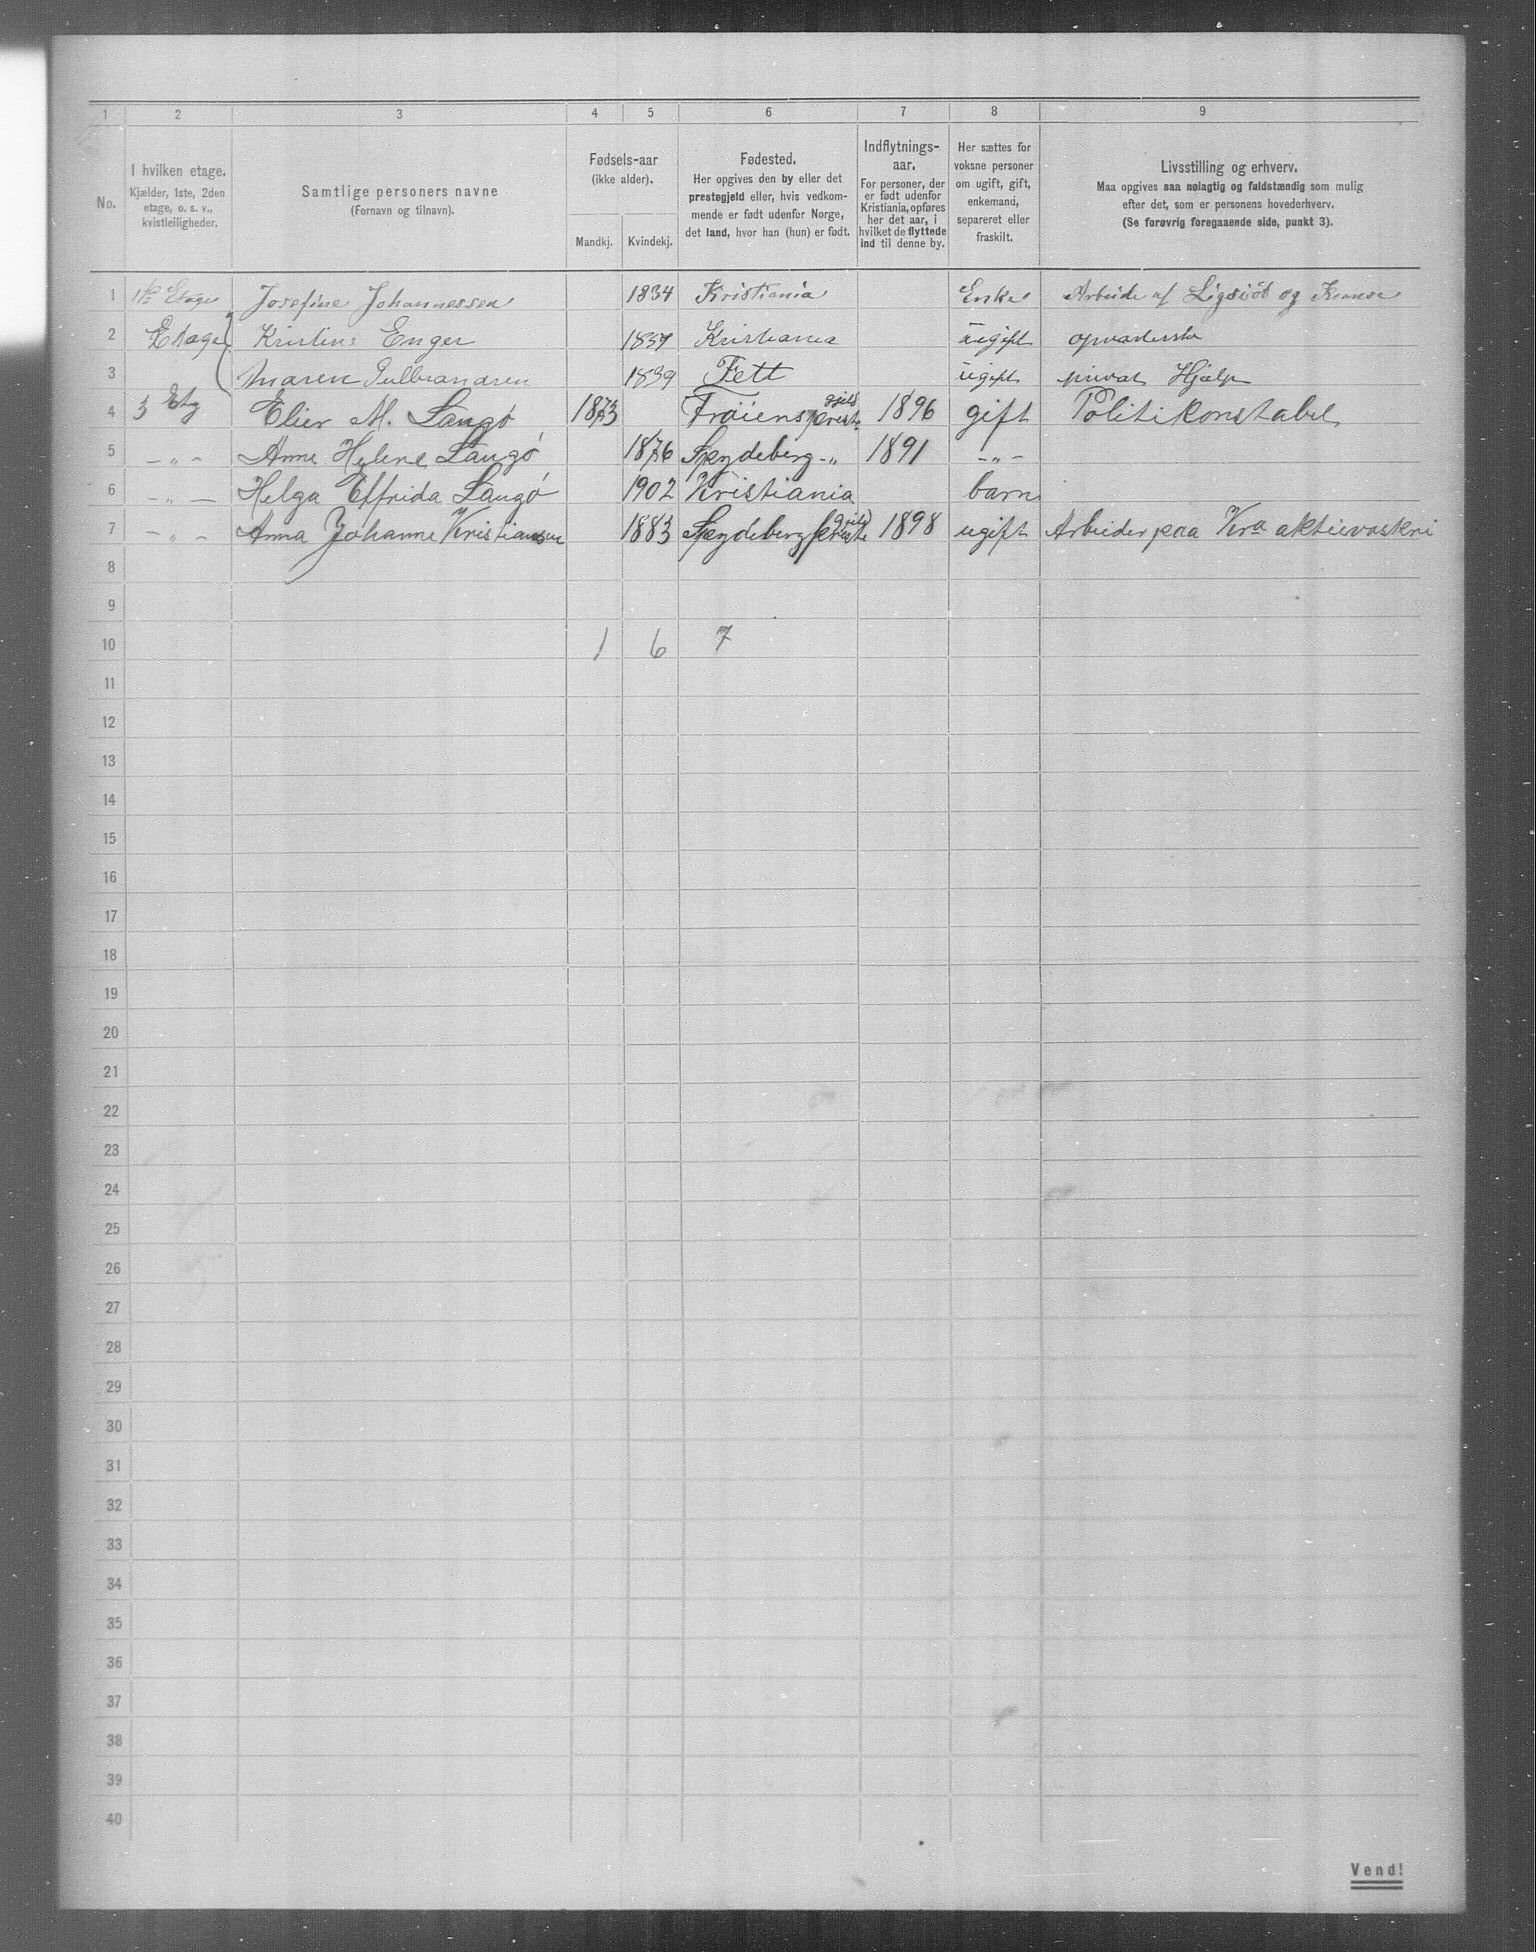 1 2 3 4 5 6 7 8 9
No.
I hvilken etage.
Kjælder, 1ste, 2den
etage, o. s. v.,
kvistleiligheder.
Samtlige personers navne
(Fornavn og tilnavn).
Fødsels-aar
(ikke alder).
Mandkj. Kvindekj.
Fødested.
Her opgives den by eller det
prestegjeld eller, hvis vedkom-
mende er født udenfor Norge,
det land, hvor han (hun) er født.
Indflytnings-
aar.
For personer, der
er født udenfor
Kristiania, opføres
her det aar, i
hvilket de flyttede
ind til denne by.
Her sættes for
voksne personer
om ugift, gift,
enkemand,
separeret eller
fraskilt.
Livsstilling og erhverv.
Maa opgives saa nøiagtig og fuldstændig som mulig
efter det, som er personens hovederhverv.
(Se forøvrig foregaaende side, punkt 3).
1 1ste Etage Josefine Johannessen 1834 Kristiania Enke Arbeide af Ligsvöb og
2 Etage Kristine Enger 1837 Kristiania ugift
3 Maren Gulbrandsen 1839 Fett ugift privat Hjælp
4 3 Etg Elier M. Langö 1873 Fröiens prestegjeld 1896 gift Politikonstabel
5 -"- Anne Helene Langö 1876 Spydeberg -"- 1891 -"-
6 -"- Helga Effrida Langö 1902 Kristiania barn
7 -"- Anna Johanne Kristiansen 1883 Spydeberg prestegjeld 1898 ugift Arbeider paa Kra aktievaskri
8
9
10 1 6 7
11
12
13
14
15
16
17
18
19
20
21
22
23
24
25
26
27
28
29
30
31
32
33
34
35
36
37
38
39
40
Vend!